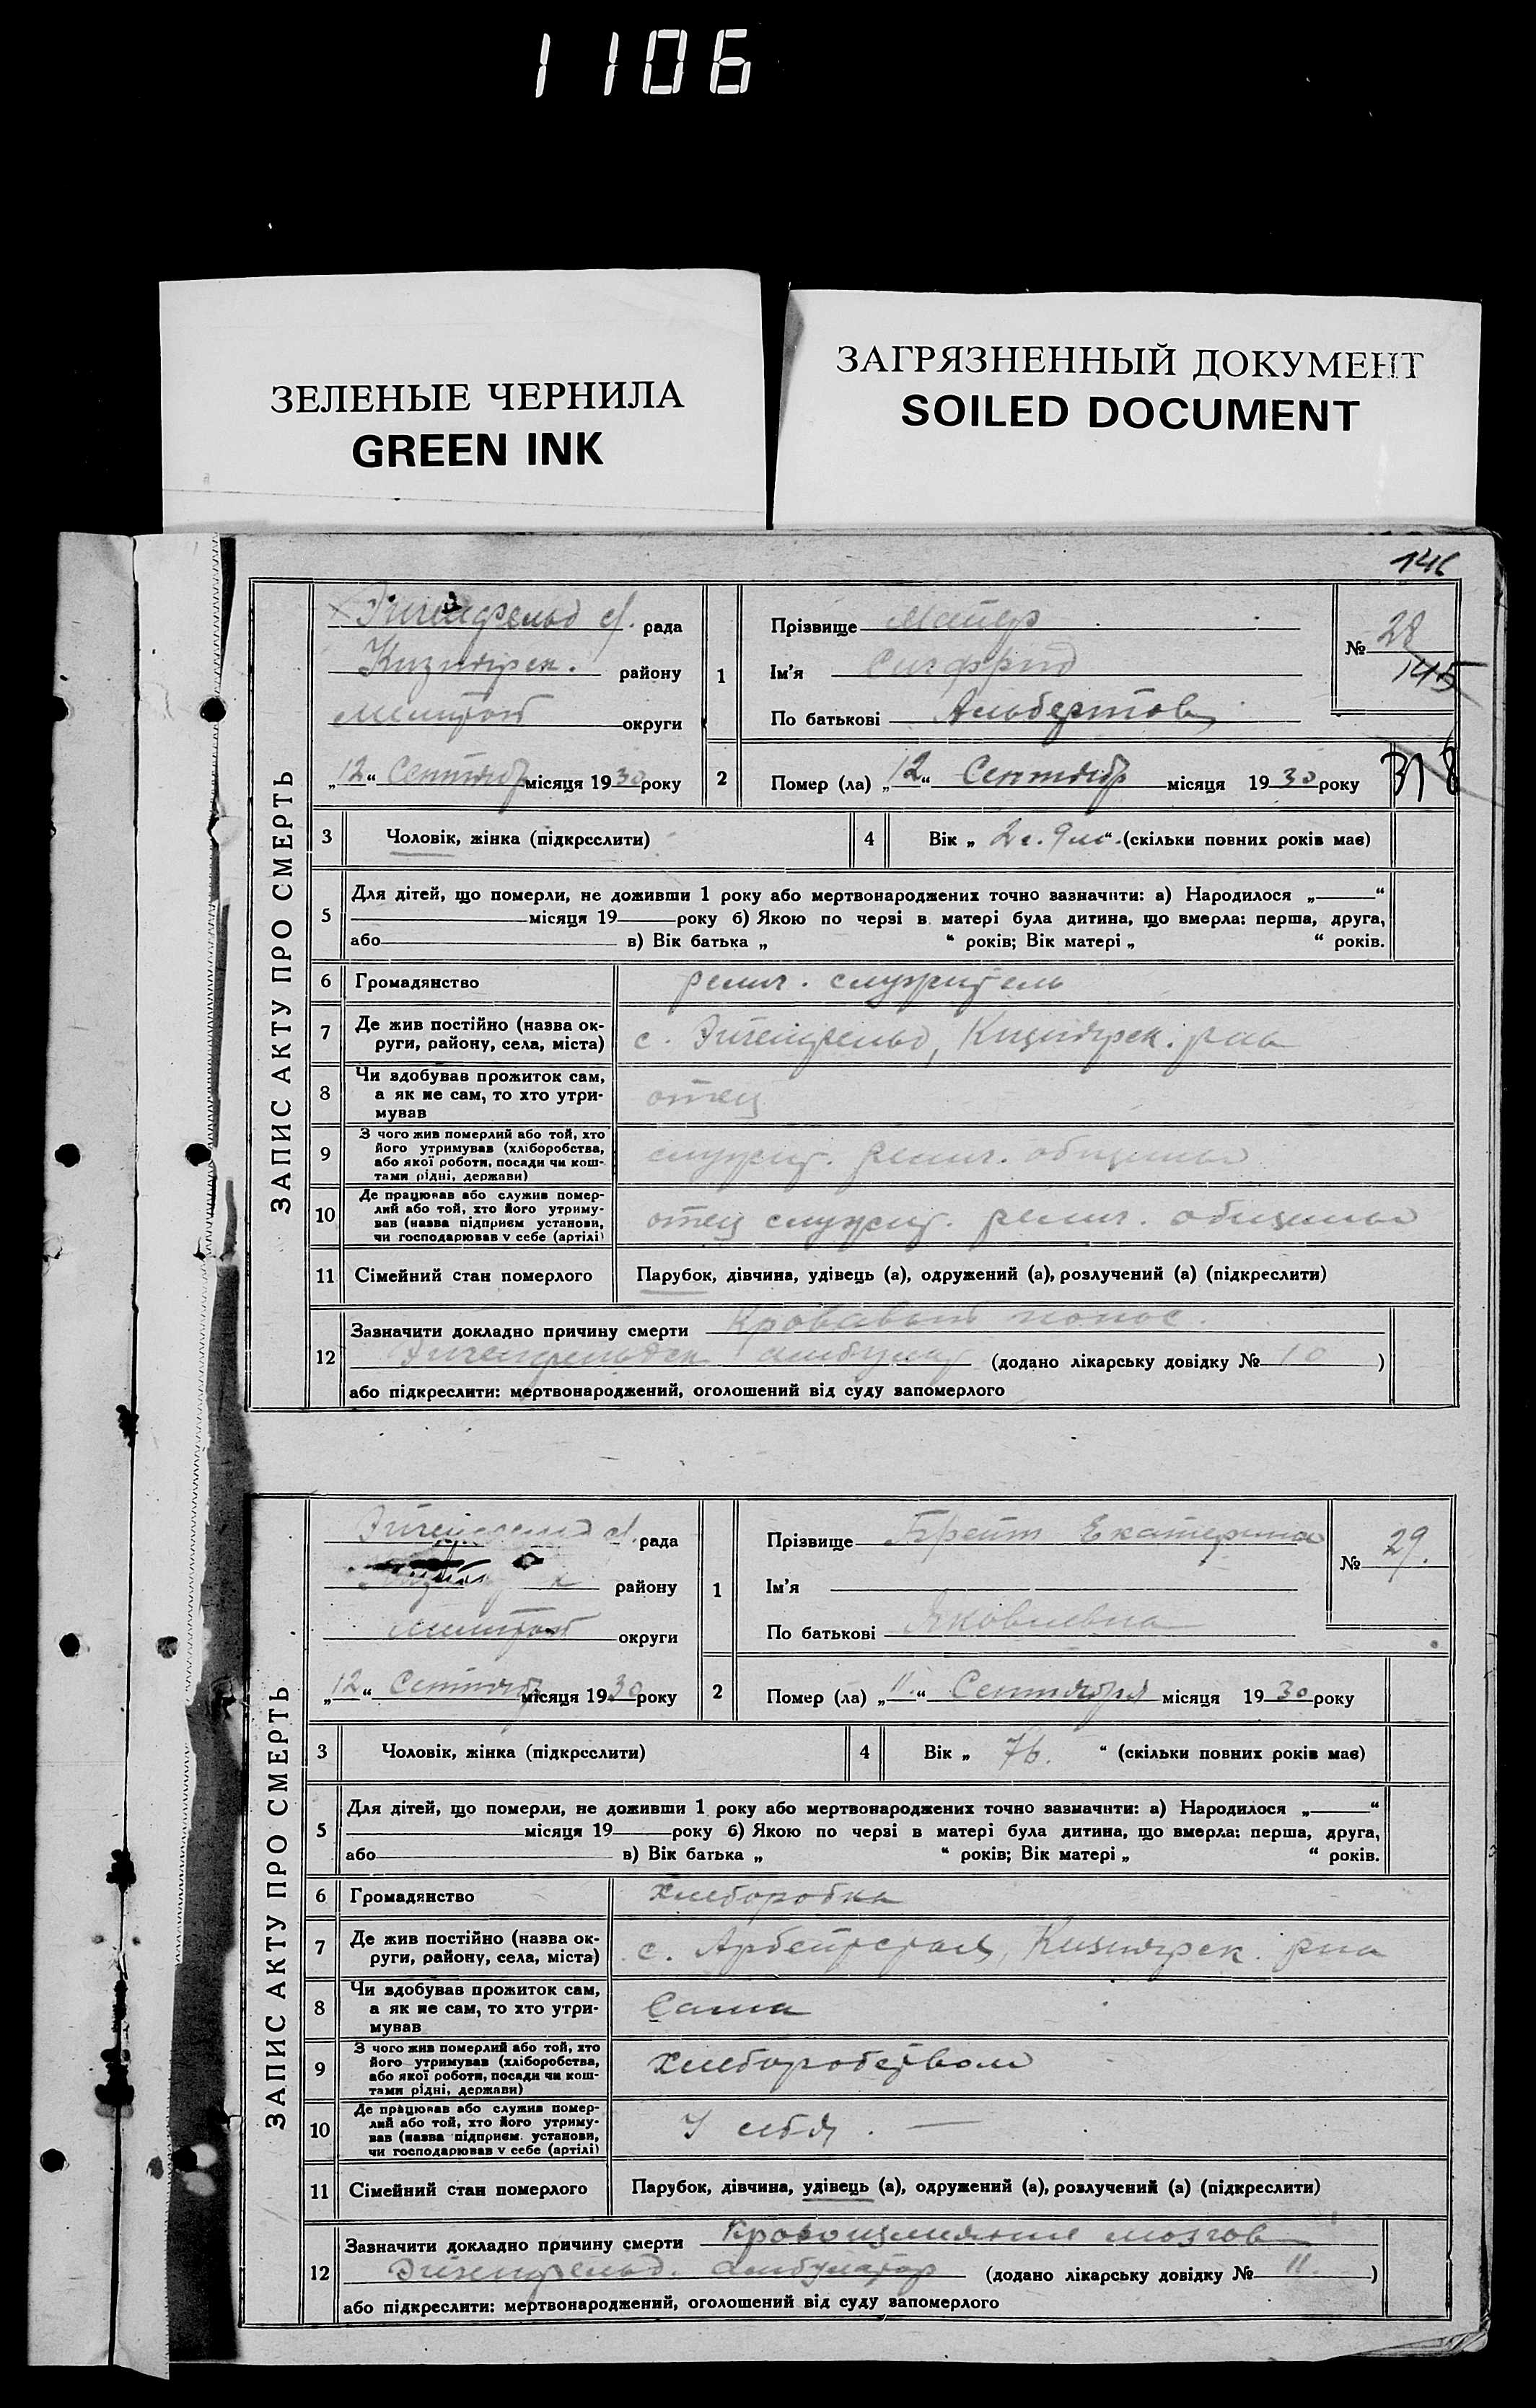 1106
ЗЕЛЕНЫЕ ЧЕРНИЛА
GREEN INK
ЗАГРЯЗНЕННЫЙ ДОКУМЕНТ
SOILED DOCUMENT
146
ЗАПИС АКТУ ПРО СМЕРТЬ
рада
району
округи
„12“ Сентябр місяця 1930 року
1
Прізвище Майер
Ім'я Сигфрид
По батькові Альбертов
№ 28
145
318
2
Помер (ла) „12“ Сентябр місяця 1930 року
3 Чоловік, жінка (підкреслити)
4 Вік „ 2 г. 9 м “ (скільки повних років має)
5 Для дітей, що померли, не доживши 1 року або мертвонароджених точно зазначити: а) Народилося „ “
місяця 19 року б) Якою по черзі в матері була дитина, що вмерла: перша, друга,
або в) Вік батька „ “ років; Вік матері „ “ років.
6 Громадянство религ. служитель
7 Де жив постійно (назва ок-
руги, району, села, міста)
с.
8 Чи здобував прожиток сам,
а як не сам, то хто утри-
мував
отец
9 З чого жив померлий або той, хто
його утримував (хліборобства,
або якої роботи, посади чи кош-
тами рідні, держави)
служит. религ. общины
10 Де працював або служив помер-
лий або той, хто його утриму-
вав (назва підприєм установи,
чи господарював у себе (артілі)
отец служит. религ. общины
11 Сімейний стан померлого Парубок, дівчина, удівець (а), одружений (а), розлучений (а) (підкреслити)
12 Зазначити докладно причину смерти Кровавый понос.
амбулат (додано лікарську довідку № 10 )
або підкреслити: мертвонароджений, оголошений від суду запомерлого
ЗАПИС АКТУ ПРО СМЕРТЬ
рада
району
округи
„12“ Сентябр місяця 1930 року
1
Прізвище Брейт Екатерина
Ім'я
По батькові Яковлевна
№ 29.
2
Помер (ла) „11.“ Сентября місяця 1930 року
3 Чоловік, жінка (підкреслити)
4 Вік „ 76. “ (скільки повних років має)
5 Для дітей, що померли, не доживши 1 року або мертвонароджених точно зазначити: а) Народилося „ “
місяця 19 року б) Якою по черзі в матері була дитина, що вмерла: перша, друга,
або в) Вік батька „ “ років; Вік матері „ “ років.
6 Громадянство хлеборобка
7 Де жив постійно (назва ок-
руги, району, села, міста)
с.
8 Чи здобував прожиток сам,
а як не сам, то хто утри-
мував
Сама
9 З чого жив померлий або той, хто
його утримував (хліборобства,
або якої роботи, посади чи кош-
тами рідні, держави)
хлеборобством
10 Де працював або служив помер-
лий або той, хто його утриму-
вав (назва підприєм. установи,
чи господарював у себе (артілі)
У себя. —
11 Сімейний стан померлого Парубок, дівчина, удівець (а), одружений (а), розлучений (а) (підкреслити)
12 Зазначити докладно причину смерти Кровоизлияние мозгов
амбулатор (додано лікарську довідку № 11. )
або підкреслити: мертвонароджений, оголошений від суду запомерлого